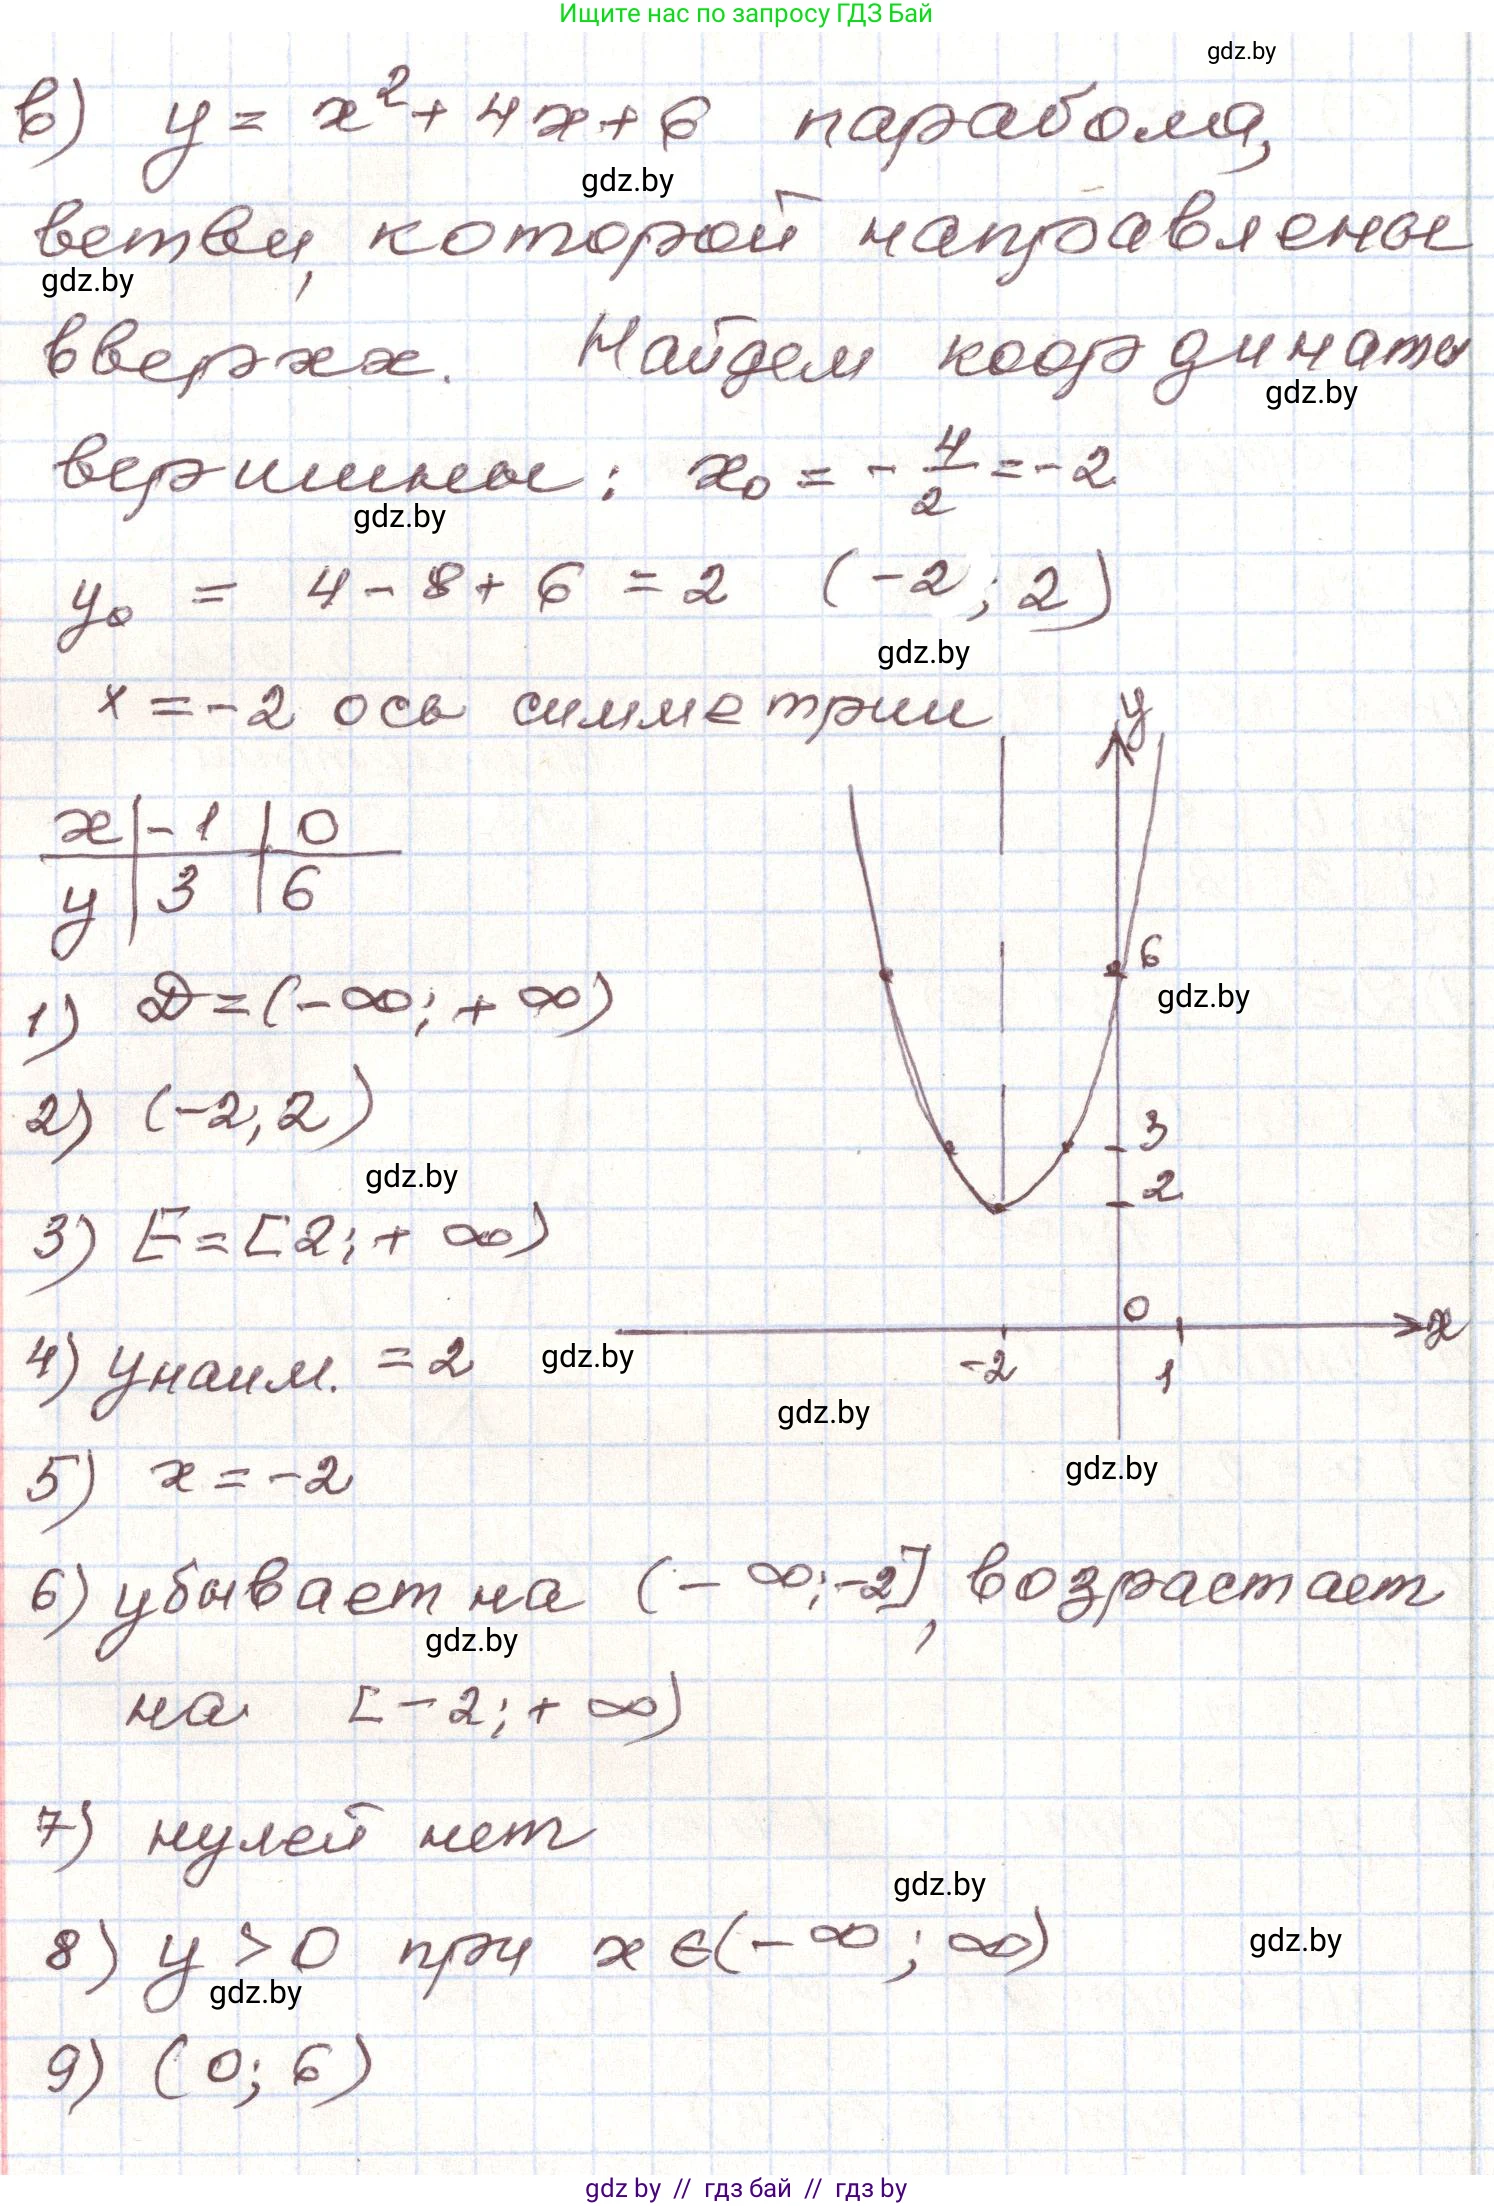 Ищите нас по запросу ГДЗ Бай
gdz.by
в) y = x² + 4x + 6 парабола,
gdz.by
ветви, которой направлены
gdz.by
вверхх. Найдем координаты
gdz.by
вершины: x₀ = -4/2 = -2
gdz.by
y₀ = 4 - 8 + 6 = 2 (-2; 2)
gdz.by
x = -2 ось симметрии
y
x | -1 | 0
y | 3 | 6
6
gdz.by
1) D = (-∞; +∞)
2) (-2; 2)
3
gdz.by
2
3) E = [2; +∞)
0
x
4) yнаим. = 2
gdz.by
-2
1
gdz.by
gdz.by
5) x = -2
6) убывает на (-∞; -2], возрастает
gdz.by
на [-2; +∞)
7) нулей нет
gdz.by
8) y > 0 при x ∈ (-∞; ∞)
gdz.by
gdz.by
9) (0; 6)
gdz by // гдз бай // гдз by